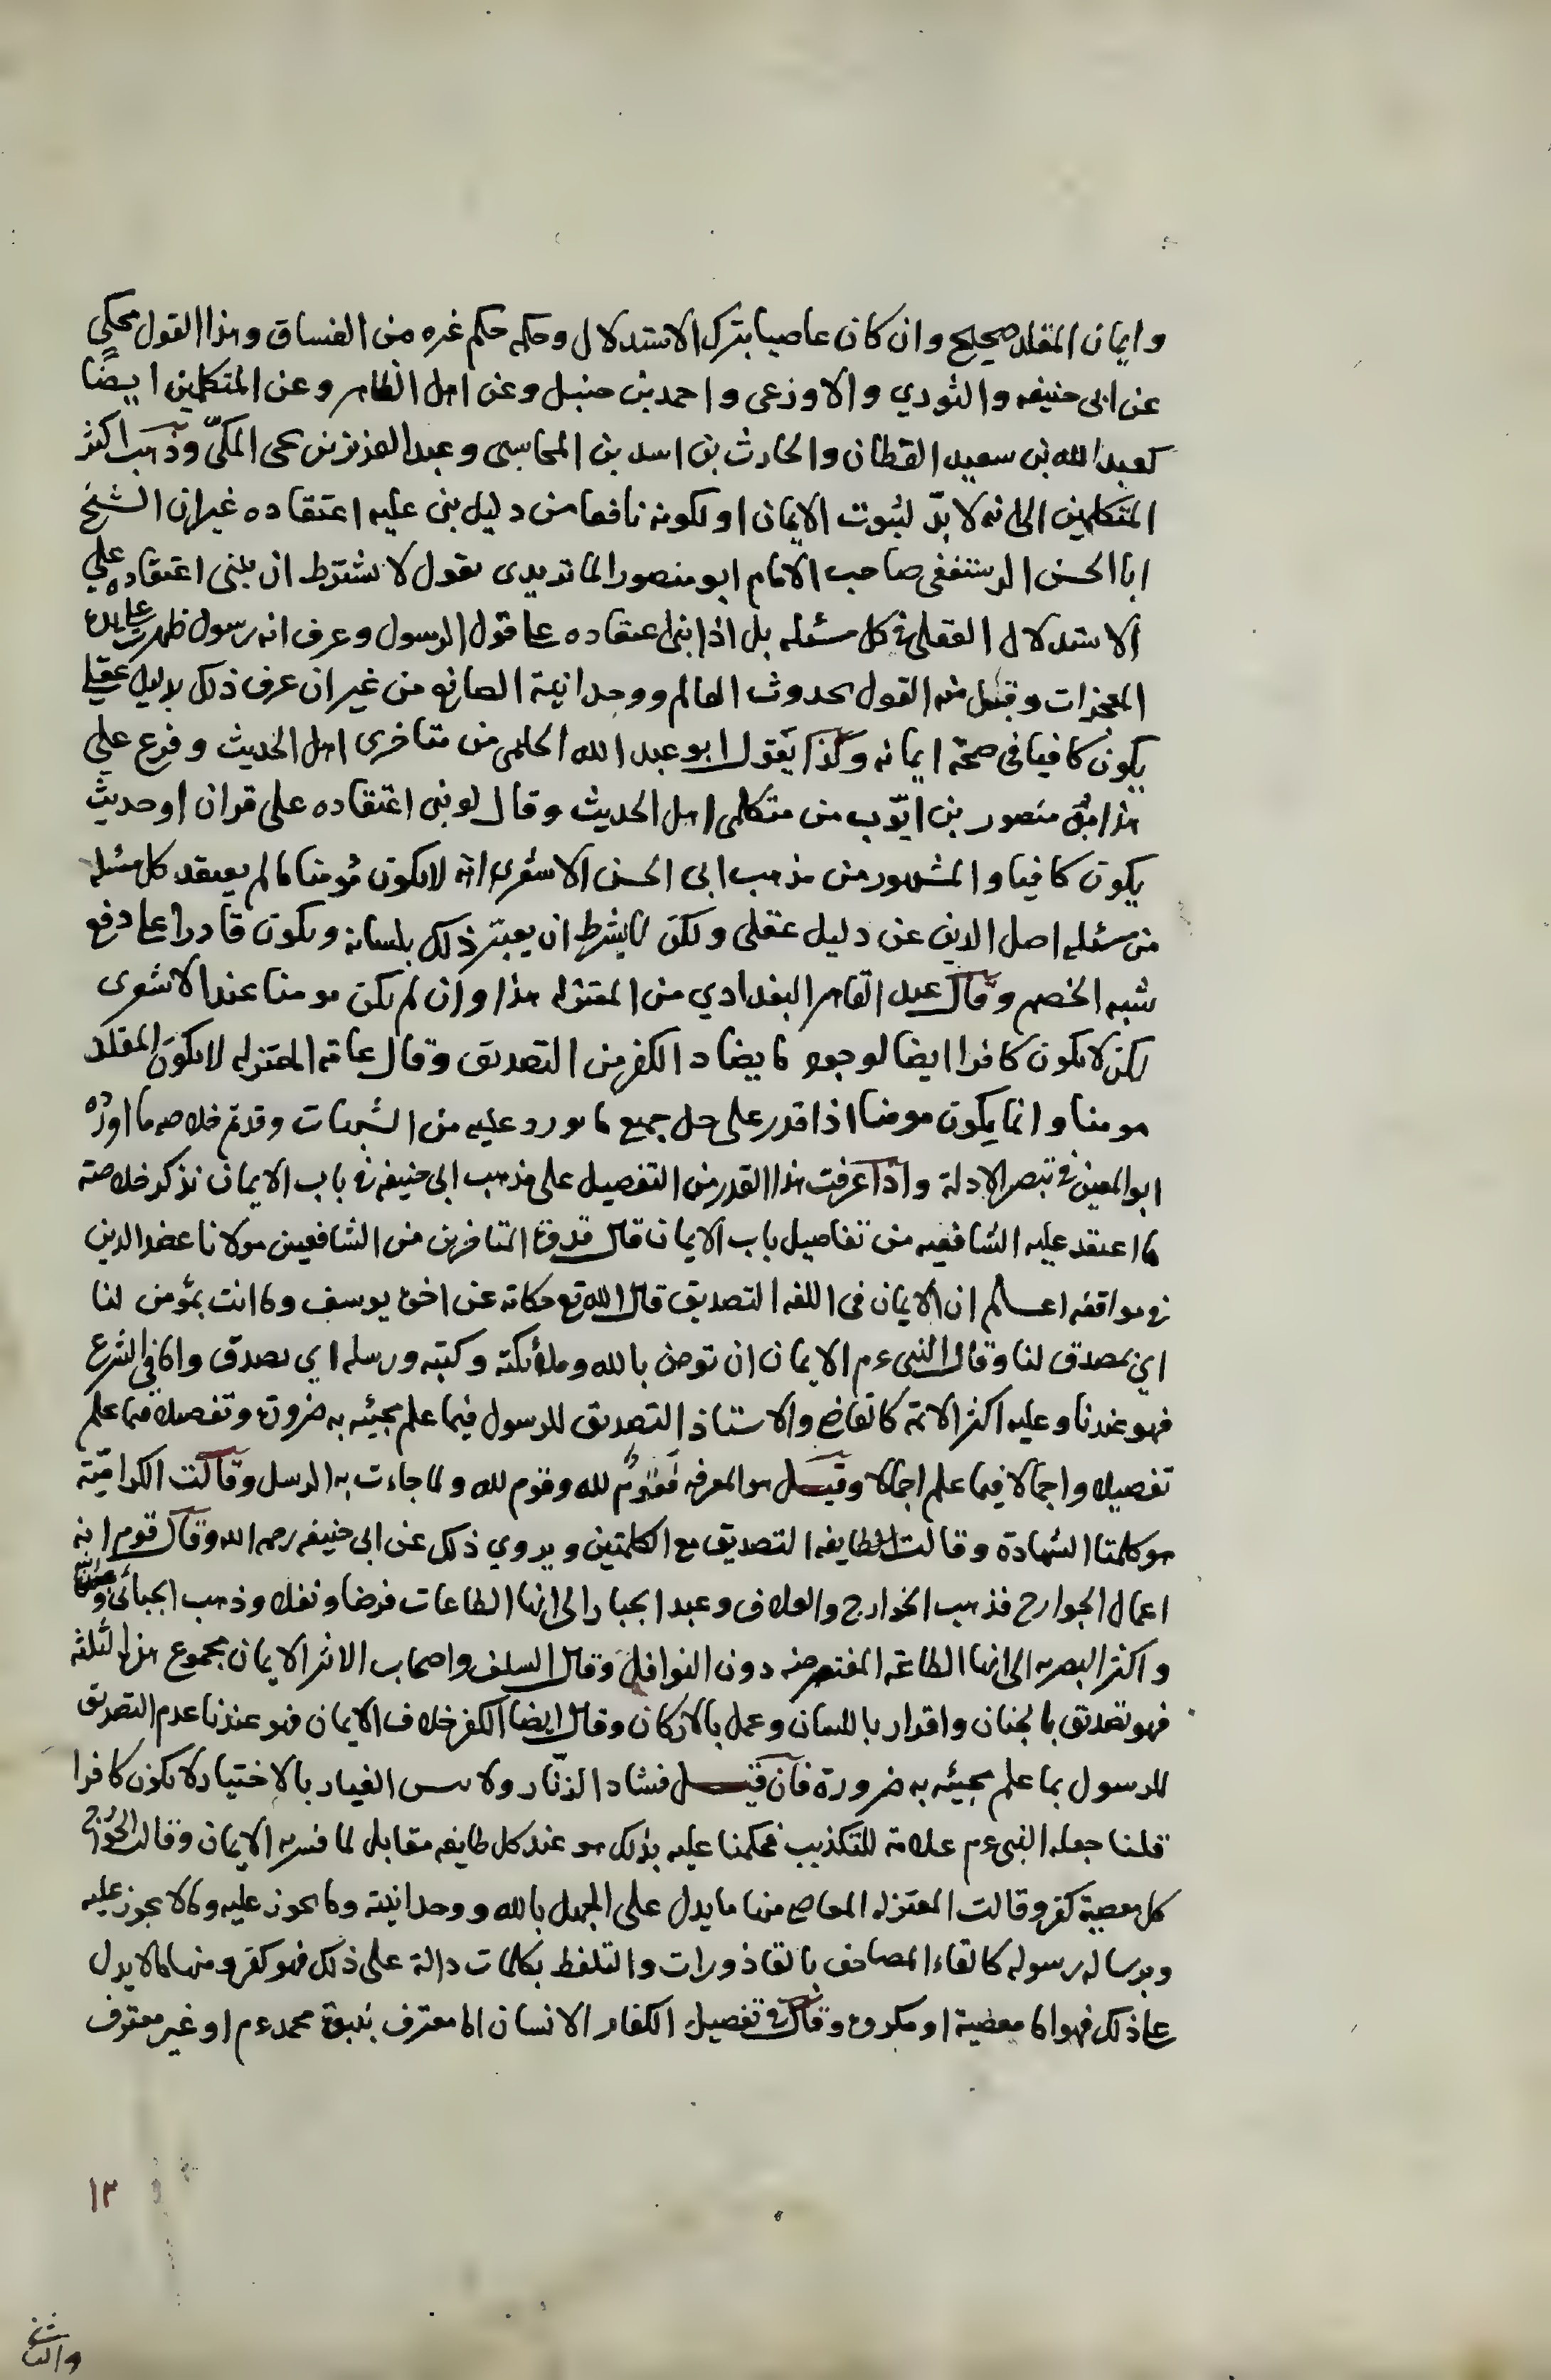 وايمان المقلد صحيح وان كان عاصيا بترك الاستدلال وحكمه حكم غيره من الفساق وهذا القول محكي
عن ابي حنيفه والثوري والاوزعى واحمد بن حنبل وعن اهل الظاهر وعن المتكلمين ايضًا
كعبد الله بن سعيد القطان والحارث بن اسد بن المحاسبى وعبد العزيز بن يحيى المكىّ وذهب اكثر
المتكلمين الى انه لا بدّ لثبوت الايمان اولكونه نافعا من دليل بنى عليه اعتقاده غير ان الشيخ
ابا الحسن الرستغفى صاحب الامام ابو منصور الماتريدى يقول لا يشترط ان يبنى اعتقاده على
الاستدلال العقلى فى كل مسئله بل اذا بنى اعتقاده على قول الرسول وعرف انه رسول ظهرت على يده
المعجزات وقبل منه القول بحدوث العالم ووحدانية الصانع من غير ان عرف ذلك بدليل عقلى
يكون كافيا فى صحة ايمانه وكذا يقول ابو عبد الله الحلمى من متاخرى اهل الحديث وفرع على
هذا منصور بن ايوّب من متكلمى اهل الحديث وقال لو بنى اعتقاده على قران او حديث
يكون كافيا والمشهور من مذهب ابى الحسن الاشعرى انه لا يكون مؤمنا ما لم يعتقد كل مسئله
من مسئله اصل الدين عن دليل عقلى ولكن لا يشرط ان يعبّر ذلك بلسانه ويكون قادرا على دفع
شبه الخصم وقال عبد القاهر البغدادي من المعتزله هذا وان لم يكن مومنا عند الاشعرى
لكن لا يكون كافرا ايضا لوجود ما يضاد الكفر من التصديق وقال عامة المعتزله لا يكون المقلد
مومنا وانما يكون مومنا اذا قدر على حل جميع ما يورد عليه من الشبهات وقد تم خلاصه ما اورده
ابو المعين فى تبصر الادلة واذا عرفت هذا القدر من التفصيل على مذهب ابى حنيفه فى باب الايمان نذكر خلاصة
ما اعتقد عليه الشافعيه من تفاصيل باب الايمان قال قدوة المتاخرين من الشافعيين مولانا عضد الدين
فى مواقفه اعلم ان الايمان فى اللغه التصديق قال الله تع حكاية عن اخوة يوسف وما انت بمؤمن لنا
اي بمصدق لنا وقال النبى ءم الايمان ان تومن بالله وملائكته وكتبه ورسله اي تصدق واما فى الشرع
فهو عندنا وعليه اكثر الائمة كالقاضى والاستاذ التصديق للرسول فيما علم مجيئه به ضرورة وتفصيلا فيما علم
تفصيلا واجمالا فيما علم اجمالا وقيل هو المعرفه فقوم لله وقوم لله ولما جاءت به الرسل وقالت الكراميّة
هو كلمتا الشهادة وقالت الطايفه التصديق مع الكلمتين ويروي ذلك عن ابى حنيفه رحمه الله وقال قوم انه
اعمال الجوارح فذهب الخوارج والعلاف وعبد الجبار الى انها الطاعات فرضا ونفلا وذهب الجبائى وابنه
واكثر البصريه الى انها الطاعة المفترضه دون النوافل وقال السلف واصحاب الاثر الايمان مجموع هذه الثلثه
فهو تصديق بالجنان واقرار باللسان وعمل بالاركان وقال ايضا الكفر خلاف الايمان فهو عندنا عدم التصديق
للرسول بما علم مجيئه به ضرورة فان قيل فشاد الزنّار ولابس الغيار بالاختيار لا يكون كافرا
قلنا جعله النبى ءم علامة للتكذيب فحكمنا عليه بذلك هو عند كل طايفه مقابل لما فسر به الايمان وقالت الخوارج
كل معصية كفر وقالت المعتزله المعاصى منها ما يدل على الجهل بالله ووحدانيته وما يجوز عليه وما لا يجوز عليه
وبرساله رسوله كالقاء المصاحف بالقاذورات والتلفظ بكلمات دالة على ذلك فهو كفر ومنها ما لا يدل
على ذلك فهو اما معصية او مكروه وقال فى تفصيل الكفار الانسان اما معترف بنبوة محمد ءم او غير معترف
١٣
والثانى